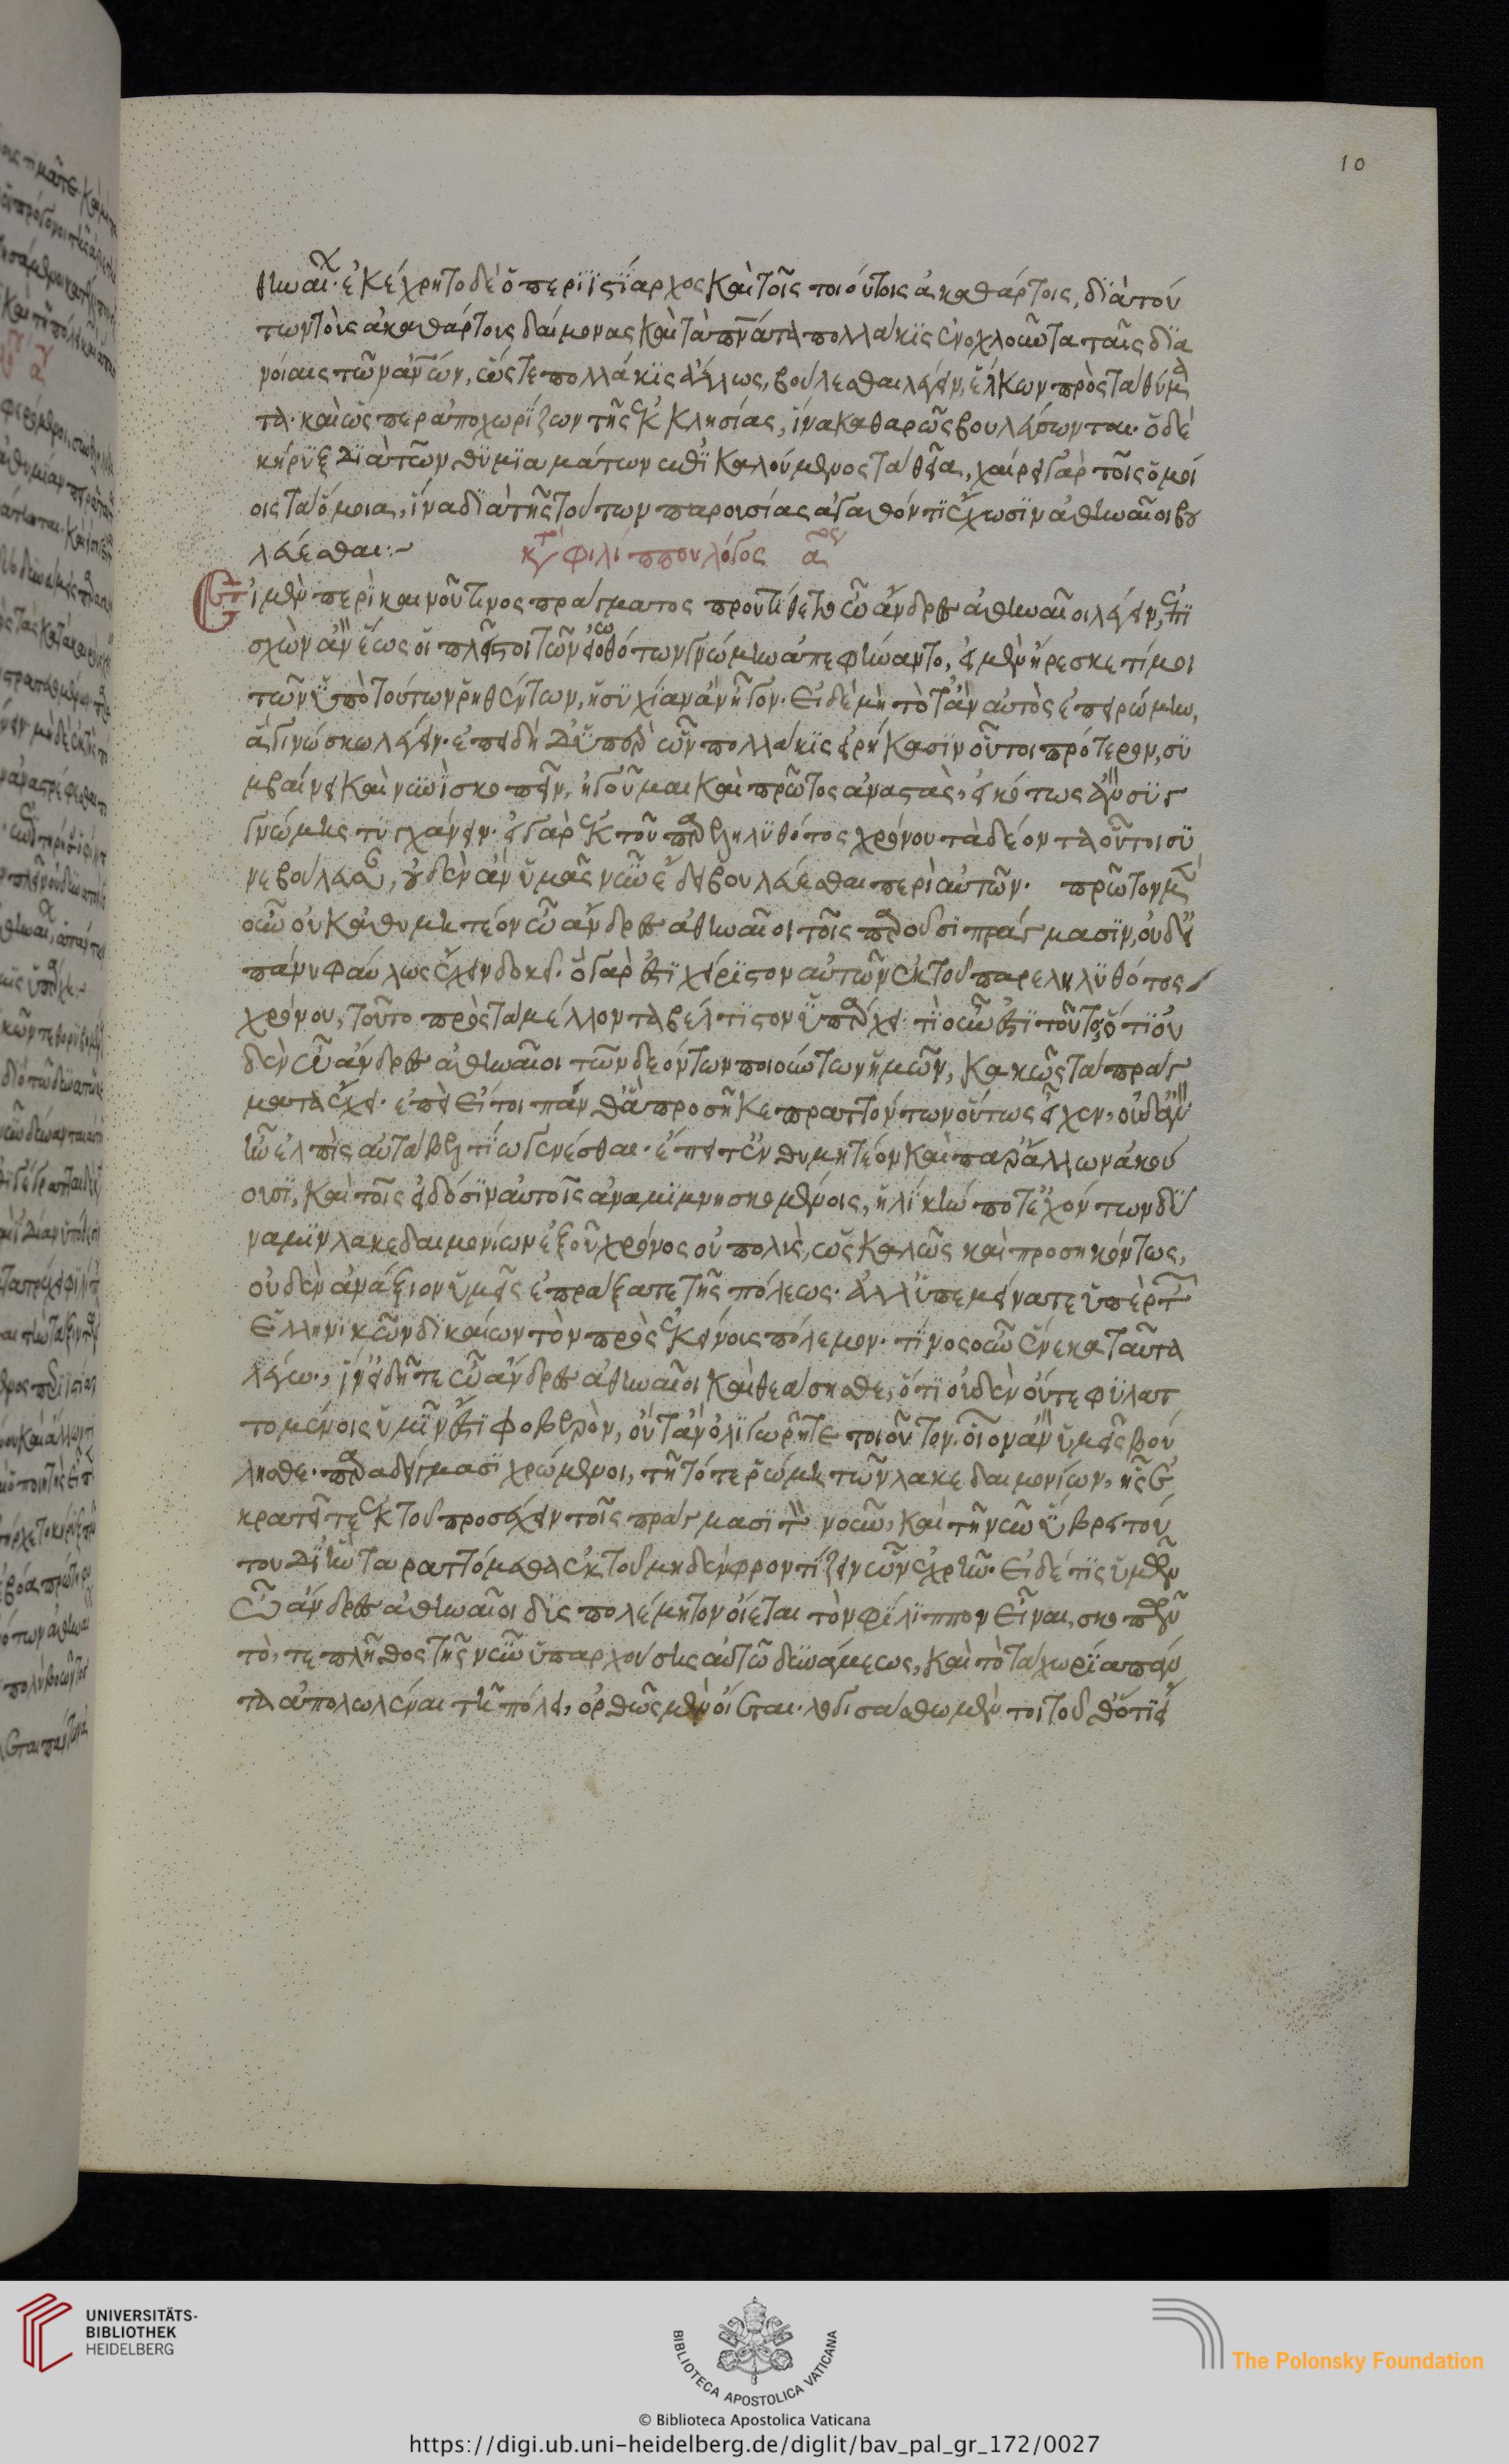 10
ἐκέχρητο δὲ ὁ περιϊστίαρχος καὶ τοῖς τοιούτοις ἀκαθάρτοις, διὰ τού
των τοὺς ἀκαθάρτους δαίμονας καὶ τὰ πνάτα πολλάκις ἐνοχλοῦντα ταῖς δια
νοίαις τῶν ἀνῶν, ὥστε πολλάκις ἄλλως, βούλεσθαι λέγειν, ἕλκων πρὸς τὰ θύμα
τα· καὶ ὥσπερ ἀποχωρίζων τῆς ἐκκλησίας, ἵνα καθαρῶς βουλεύσωνται. ὁ δὲ
κήρυξ διὰ τῶν θυμιαμάτων αὖθι καλούμενος τὰ θεῖα, χαίρει γὰρ τοῖς ὁμοί
οις τὰ ὅμοια, ἵνα διὰ τῆς τούτων παρουσίας ἀγαθόν τι ἔχωσιν ἀθηναῖοι βου
λεύεσθαι:~ κτ φιλίππου λόγος α
Εἰ μὲν περὶ καινοῦ τινος πράγματος προυτίθετο ὦ ἄνδρες ἀθηναῖοι λέγειν, ἐπι
σχὼν ἂν ἕως οἱ πλεῖστοι τῶν εἰωθότων γνώμην ἀπεφήναντο, εἰ μὲν ἤρεσκέ τί μοι
τῶν ὑπὸ τούτων ῥηθέντων, ἡσυχίαν ἂν ἦγον. εἰ δὲ μὴ τότ' ἂν αὐτὸς ἐπειρώμην,
ἃ γινώσκω λέγειν· ἐπειδὴ δ' ὑπὲρ ὧν πολλάκις εἰρήκασιν οὗτοι πρότερον, συ
μβαίνει καὶ νυνὶ σκοπεῖν, ἡγοῦμαι καὶ πρῶτος ἀναστὰς, εἰκότως ἂν συγ
γνώμης τυγχάνειν. εἰ γὰρ ἐκ τοῦ παρεληλυθότος χρόνου τὰ δέοντα οὗτοι συ
νεβούλευσαν, οὐδὲν ἂν ὑμᾶς νῦν ἔδει βουλεύεσθαι περὶ αὐτῶν. πρῶτον μὲν
οὖν οὐκ ἀθυμητέον ὦ ἄνδρες ἀθηναῖοι τοῖς παροῦσι πράγμασιν, οὐδ' εἰ
πάνυ φαύλως ἔχειν δοκεῖ. ὃ γάρ ἐστι χείριστον αὐτῶν ἐκ τοῦ παρεληλυθότος
χρόνου, τοῦτο πρὸς τὰ μέλλοντα βέλτιστον ὑπάρχει. τί οὖν ἐστι τοῦτο; ὅτι οὐ
δὲν ὦ ἄνδρες ἀθηναῖοι τῶν δεόντων ποιούντων ἡμῶν, κακῶς τὰ πράγ
ματα ἔχει. ἐπεὶ εἴ τοι πάνθ' ἃ προσῆκε πραττόντων οὕτως εἶχεν, οὐδ' ἂν
ἦν ἐλπὶς αὐτὰ βελτίω γενέσθαι. ἔπειτ' ἐνθυμητέον καὶ παρ' ἄλλων ἀκού
ουσι, καὶ τοῖς εἰδόσιν αὐτοῖς ἀναμιμνησκομένοις, ἡλίκην ποτ' ἐχόντων δύ
ναμιν λακεδαιμονίων ἐξ οὗ χρόνος οὐ πολὺς, ὡς καλῶς καὶ προσηκόντως,
οὐδὲν ἀνάξιον ὑμεῖς ἐπράξατε τῆς πόλεως. ἀλλ' ὑπεμείνατε ὑπὲρ τ
Ἑλληνικῶν δικαίων τὸν πρὸς ἐκείνους πόλεμον. τίνος οὖν ἕνεκα ταῦτα
λέγω., ἵν' εἰδῆτε ὦ ἄνδρες ἀθηναῖοι καὶ θεάσησθε, ὅτι οὐδὲν οὔτε φυλατ
τομένοις ὑμῖν ἐστι φοβερὸν, οὔτ' ἂν ὀλιγωρῆτε τοιοῦτον. οἷον ἂν ὑμεῖς βού
λησθε. παραδείγμασι χρώμενοι, τῇ τότε ῥώμῃ τῶν λακεδαιμονίων, ἧς ἐ
κρατεῖτε ἐκ τοῦ προσέχειν τοῖς πράγμασι τὸν νοῦν, καὶ τῇ νῦν ὕβρει τού
του δι' ἣν ταραττόμεθα ἐκ τοῦ μηδὲν φροντίζειν ὧν ἐχρῆν. εἰ δέ τις ὑμῶν
ὦ ἄνδρες ἀθηναῖοι δυσπολέμητον οἴεται τὸν φίλιππον εἶναι, σκοπῶν
τό, τε πλῆθος τῆς νῦν ὑπαρχούσης αὐτῷ δυνάμεως, καὶ τὸ τὰ χωρία πάν
τα ἀπολωλέναι τῇ πόλει, ὀρθῶς μὲν οἴεται. λογισάσθω μέν τοι τοῦθ' ὅτι εἴ
UNIVERSITÄTS-
BIBLIOTHEK
HEIDELBERG
BIBLIOTECA APOSTOLICA VATICANA
The Polonsky Foundation
© Biblioteca Apostolica Vaticana
https://digi.ub.uni-heidelberg.de/diglit/bav_pal_gr_172/0027